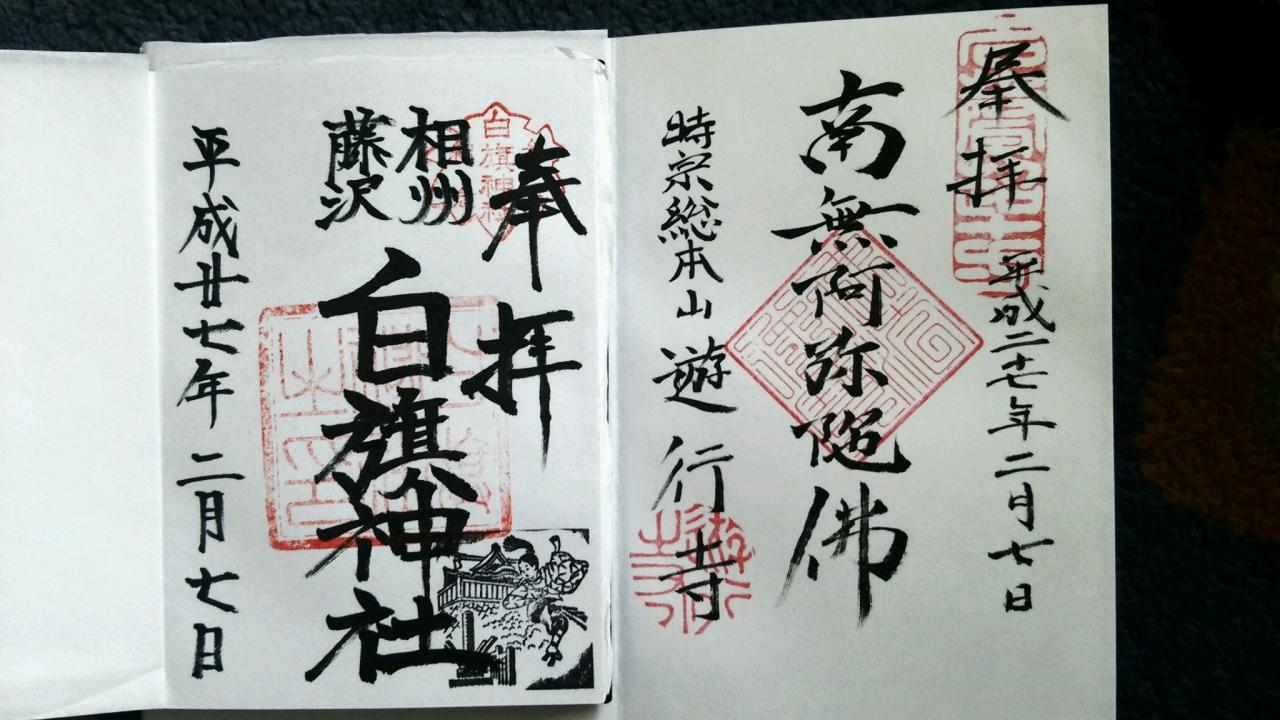 奉拝
平成二十七年二月七日
南無阿弥陀佛
時宗総本山 遊行寺
奉拝
白旗神社
相州
藤沢
白旗神社
平成廿七年二月七日